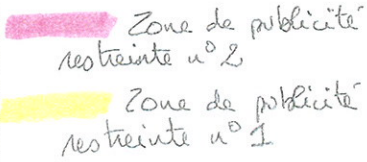 Zone de publicité
restreinte n° 2
Zone de publicité
restreinte n° 1